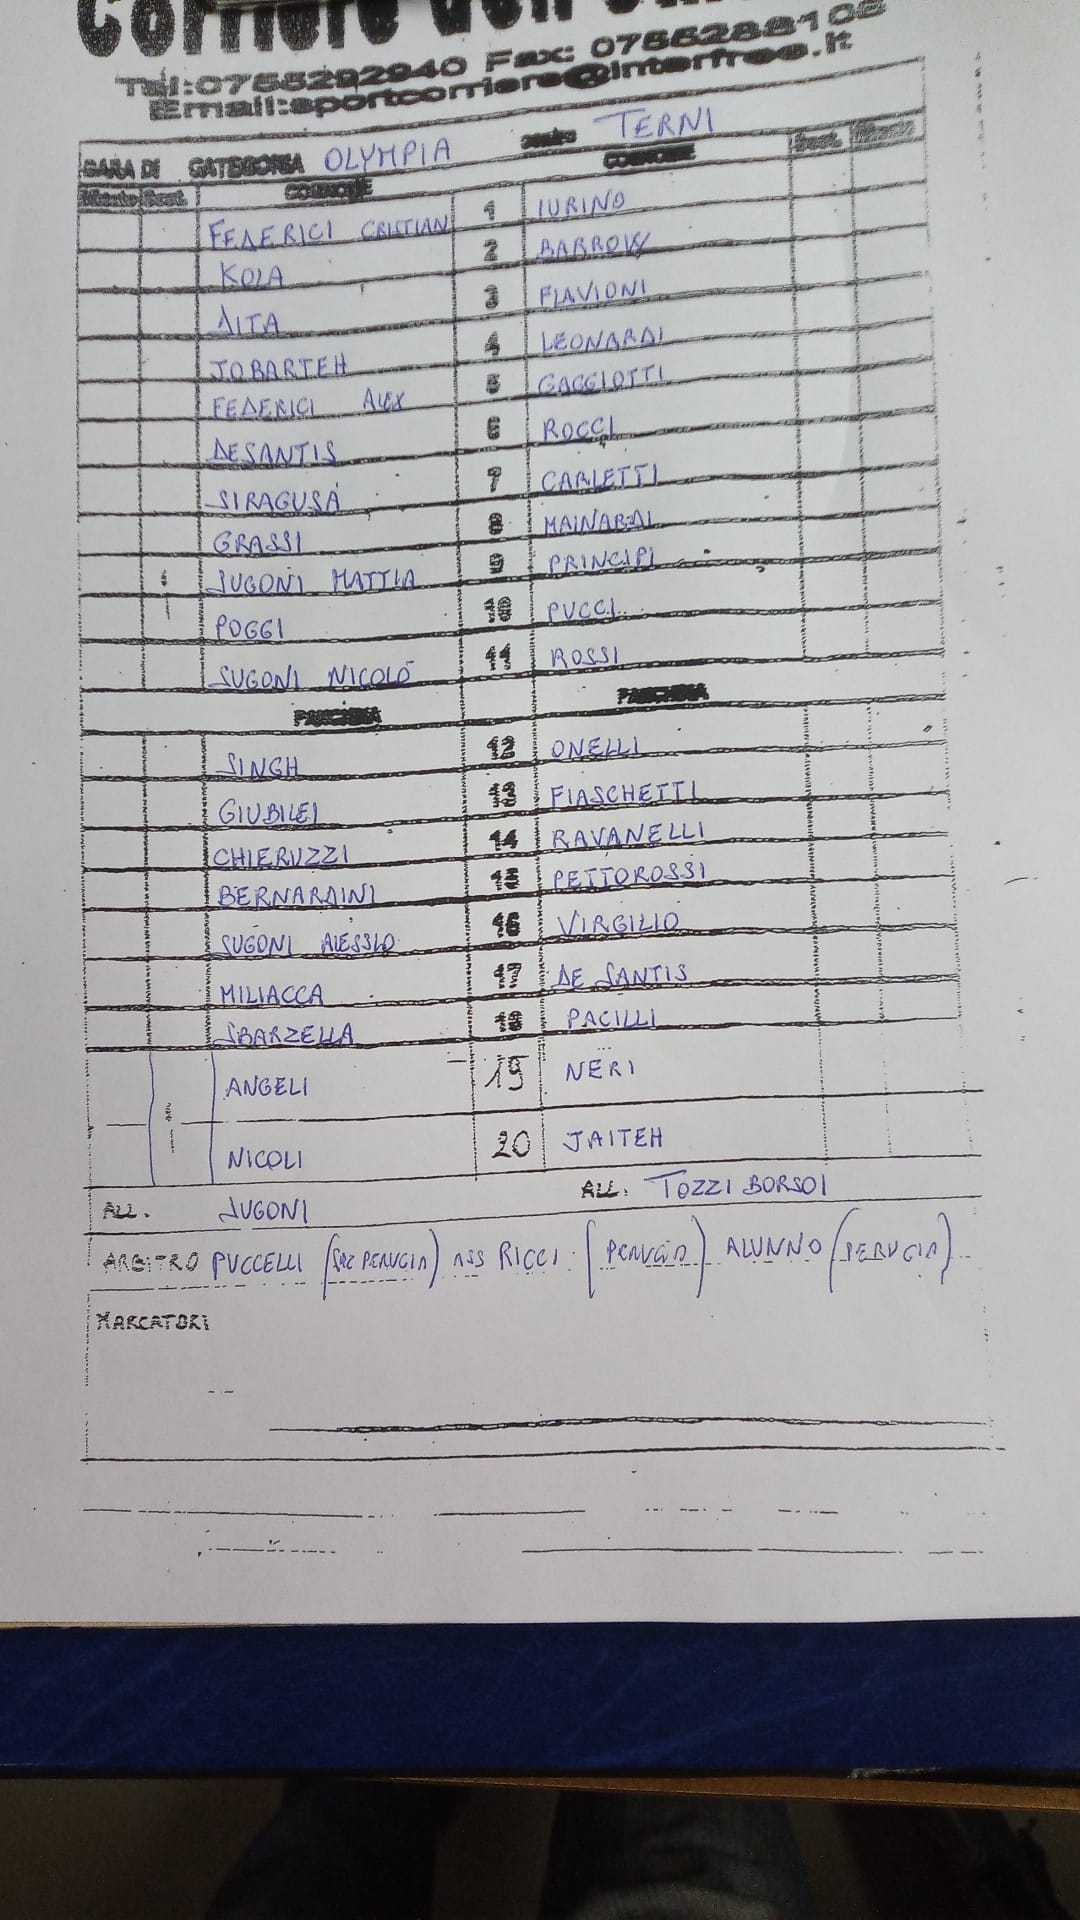 Corriere dell'
Tel:0755292940 Fax: 0755288108
Email:sportcorriere@interfree.it
GARA DI CATEGORIA OLYMPIA TERNI
COGNOME COGNOME
FEDERICI CRISTIAN 1 IURINO
KOLA 2 BARROW
DITA 3 FLAVIONI
JOBARTEH 4 LEONARDI
FEDERICI ALEX 5 GAGGIOTTI
DESANTIS 6 ROCCI
SIRAGUSA 7 CARLETTI
GRASSI 8 MAINARDI
SUGONI MATTIA 9 PRINCIPI
POGGI 10 PUCCI
SUGONI NICOLÒ 11 ROSSI
PANCHINA PANCHINA
SINGH 12 ONELLI
GIUBILEI 13 FIASCHETTI
CHIERUZZI 14 RAVANELLI
BERNARDINI 15 PETTOROSSI
SUGONI ALESSIO 16 VIRGILIO
MILIACCA 17 DE SANTIS
SBARZELLA 18 PACILLI
ANGELI 19 NERI
NICOLI 20 JAITEH
ALL. SUGONI ALL. TOZZI BORSOI
ARBITRO PUCCELLI (SEZ PERUGIA) ASS RICCI (PERUGIA) ALUNNO (PERUGIA)
MARCATORI